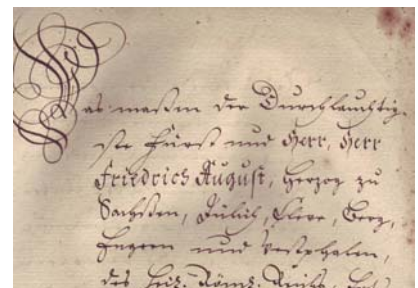 Was maßen der Durchlauchtig-
ste Fürst und Herr, Herr
Friedrich August, Herzog zu
Sachßen, Jülich, Cleve, Berg,
Engern und Westphalen,
des Heil. Röm. Reichs